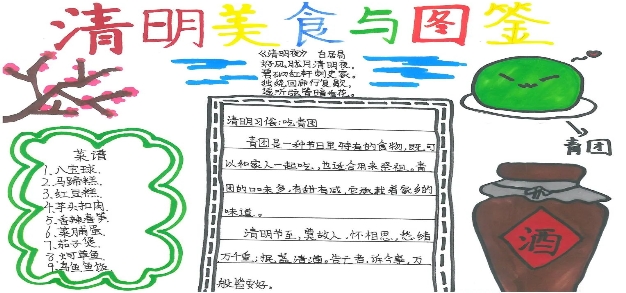 清明美食与图鉴
《清明夜》 白居易
好风胧月清明夜，
碧砌红轩刺史家。
独绕回廊行复歇，
遥听弦管暗看花。
青团
菜谱
1.八宝球.
2.马蹄糕.
3.红豆糕.
4.芋头扣肉
5.香辣春笋
6.菜脯蛋.
7.茄子煲.
9.乌鱼鱼饭
清明习俗:吃青团
青团是一种节日里特有的食物,既可
以和家人一起吃,也适合用来祭祖。青
团的口味多,有甜有咸,它承载着家乡的
味道。
清明节至,莫故人,怀相思,愁绪
万千重;
般皆安好。
酒